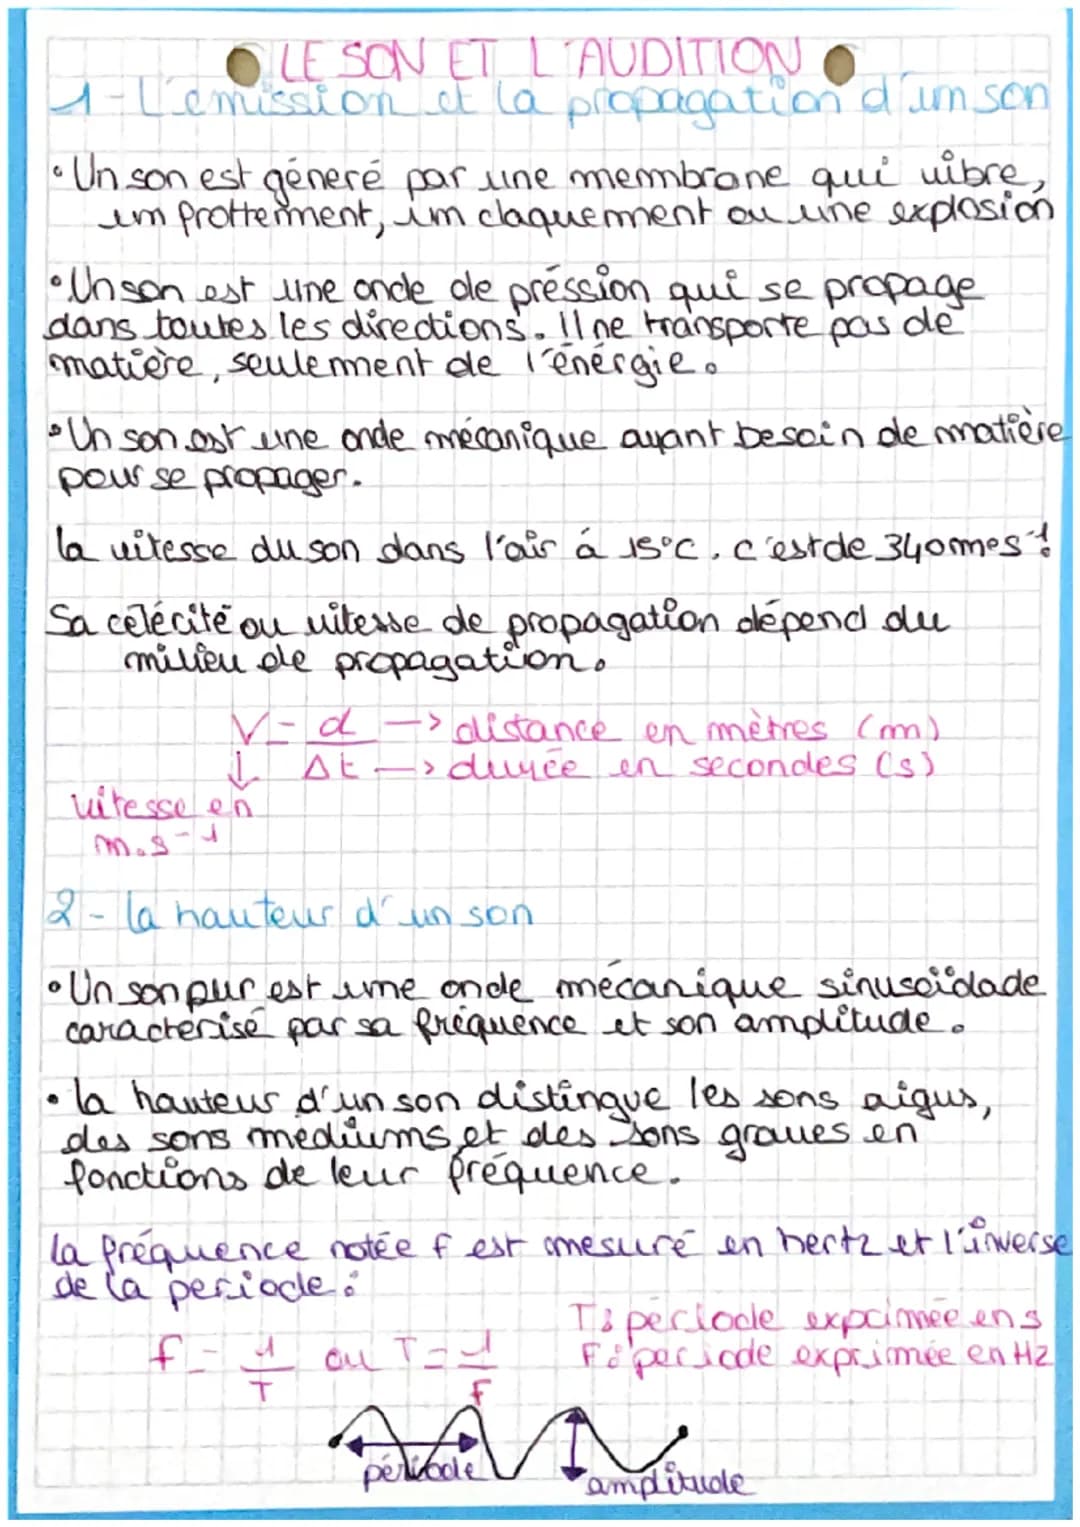 LE SON ET L'AUDITION
1-L'émission et la propagation d'un son
• Un son est géneré par une membrane qui vibre,
un frottement, un claquement ou une explosion
• Un son est une onde de préssion qui se propage
dans toutes les directions. Il ne transporte pas de
matière, seulement de l'énérgie.
• Un son est une onde mécanique ayant besoin de matière
pour se propager.
la vitesse du son dans l'air á 15°C, c'est de 340 mes-1.
Sa célécité ou vitesse de propagation dépend du
milieu de propagation.
V = d -> distance en mètres (m)
↓ Δt -> durée en secondes (s)
vitesse en
m.s-1
2 - la hauteur d'un son
• Un son pur est une onde mécanique sinusoïdade
caractérisé par sa fréquence et son amplitude.
• la hauteur d'un son distingue les sons aigus,
des sons médiums et des sons graves en
fonctions de leur fréquence.
la fréquence notée f est mesuré en hertz et l'inverse
de la periode :
T: période exprimée en s
f = 1/T ou T = 1/F
F: periode exprimée en Hz
période
amplitude